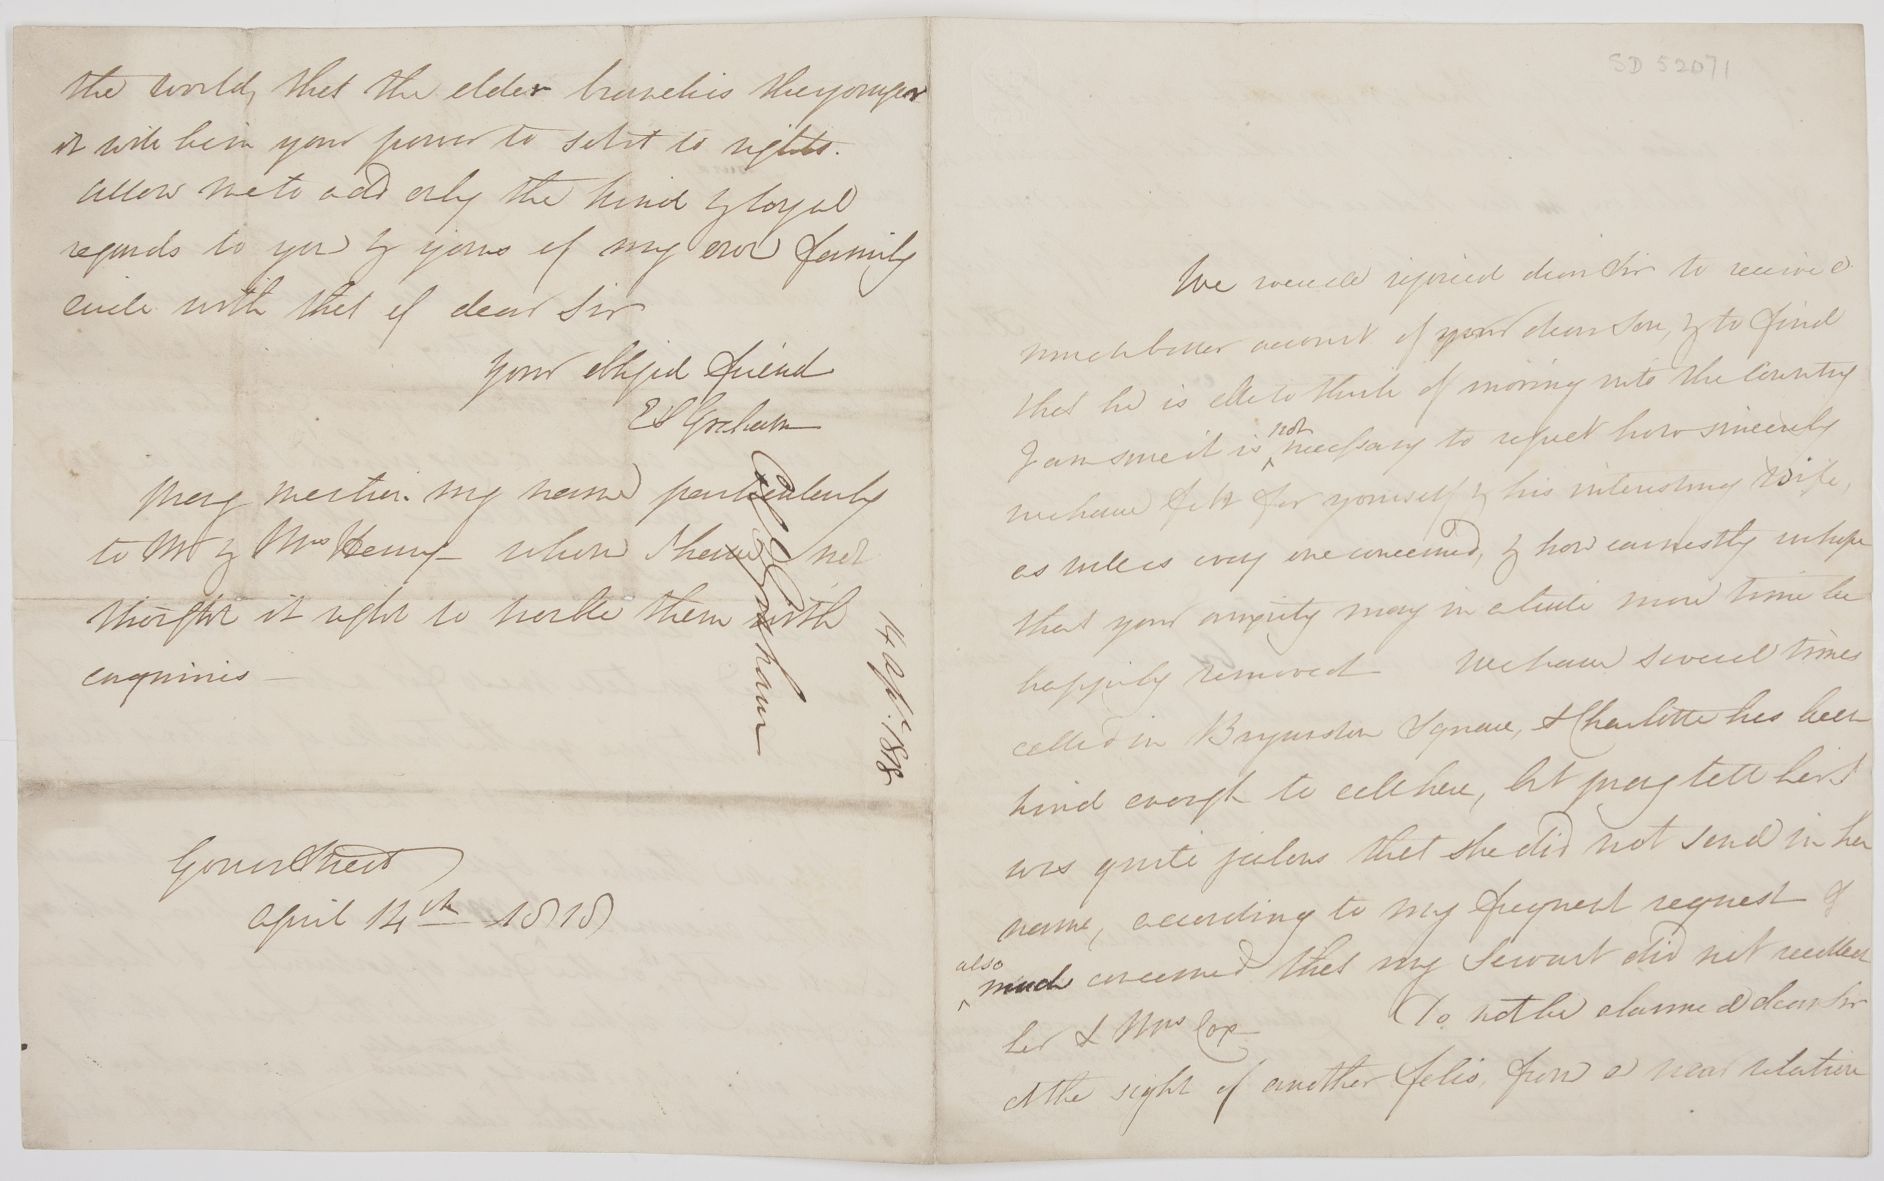 SD 52071
We were all rejoiced dear Sir to receive a
much better account of your dear son, & to find
that he is able to think of moving into the Country
I am sure it is not necessary to repeat how sincerely
we have felt for yourself & his interesting Wife,
as well as every one concerned, & how earnestly we hope
that your anxiety may in a little more time be
happily removed We have several times
called in Bryanston Square, & Charlotte has been
kind enough to call here, but pray tell her I
was quite jealous that she did not send in her
name, according to my frequent request &
also much concerned that my Servant did not recollect
her & Mrs Cox Do not be alarmed dear Sir
at the sight of another folio, from a near relation
the world, that the elder branch is the younger
it will be in your power to set it to rights.
allow me to add only the kind & loyal
regards to you & yours of my own family
circle with that of dear Sir
your obliged friend
E S Graham
pray mention my name particularly
to Mr & Mrs Henry whom I have not
thought it right to trouble them with
enquiries —
Gower Street
April 14th 1818
Graham
14 Apl. 1818